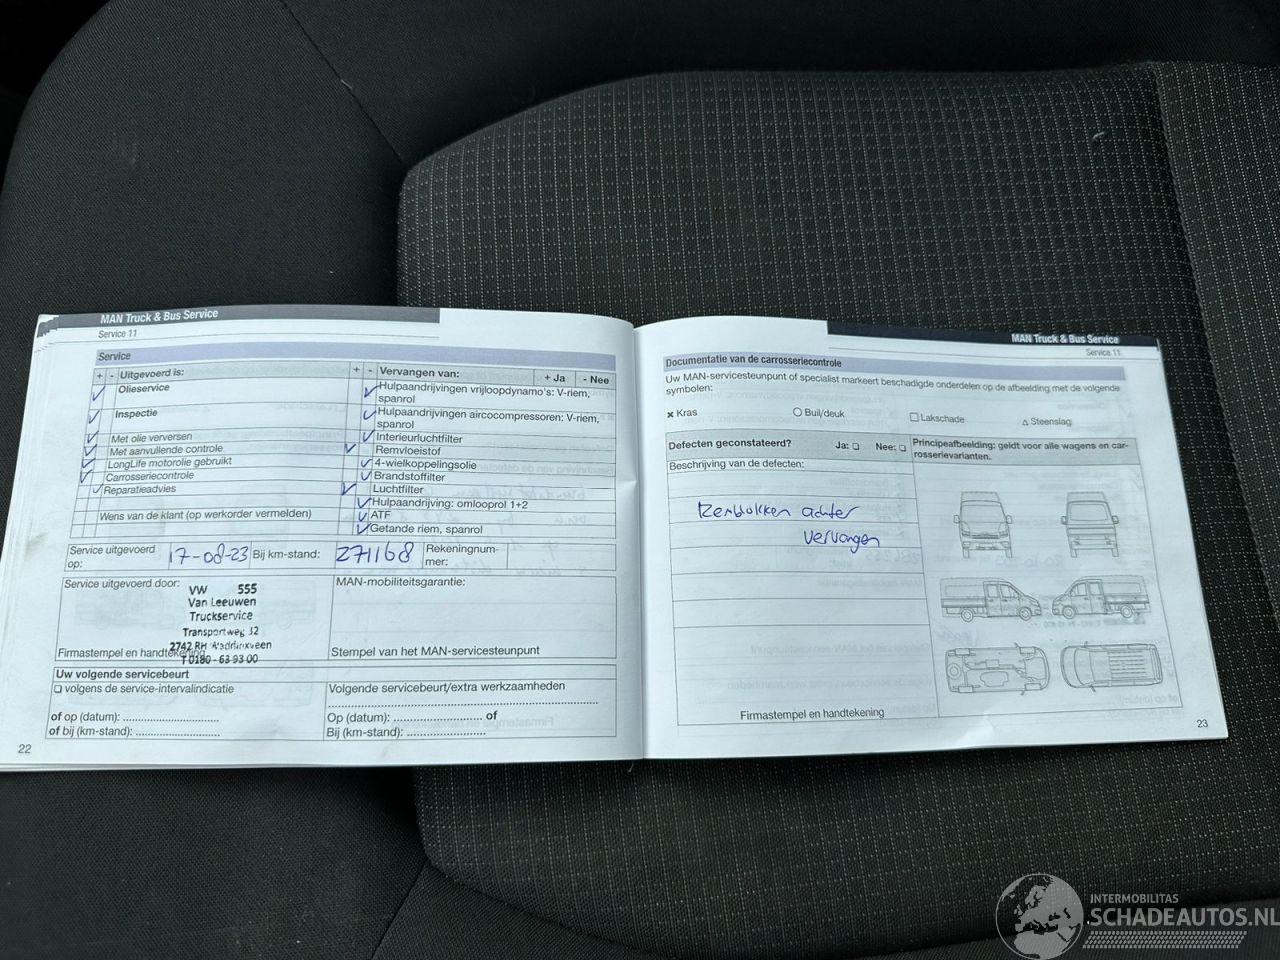 MAN Truck & Bus Service
Service 11
Service
+ - Uitgevoerd is:
Olieservice
Inspectie
Met olie verversen
Met aanvullende controle
LongLife motorolie gebruikt
Carrosseriecontrole
Reparatieadvies
Wens van de klant (op werkorder vermelden)
+ - Vervangen van: + Ja - Nee
Hulpaandrijvingen vrijloopdynamo's: V-riem,
spanrol
Hulpaandrijvingen aircocompressoren: V-riem,
spanrol
Interieurluchtfilter
Remvloeistof
4-wielkoppelingsolie
Brandstoffilter
Luchtfilter
Hulpaandrijving: omlooprol 1+2
ATF
Getande riem, spanrol
Service uitgevoerd
op:
17-08-23
Bij km-stand:
271168
Rekeningnum-
mer:
Service uitgevoerd door:
VW 555
Van Leeuwen
Truckservice
Transportweg 32
2742 RH Waddinxveen
T 0180 - 63 93 00
Firmastempel en handtekening
MAN-mobiliteitsgarantie:
Stempel van het MAN-servicesteunpunt
Uw volgende servicebeurt
volgens de service-intervalindicatie
of op (datum): ..............................
of bij (km-stand): ..........................
Volgende servicebeurt/extra werkzaamheden
Op (datum): ............................ of
Bij (km-stand): .........................
22
MAN Truck & Bus Service
Service 11
Documentatie van de carrosseriecontrole
Uw MAN-servicesteunpunt of specialist markeert beschadigde onderdelen op de afbeelding met de volgende
symbolen:
× Kras
Buil/deuk
Lakschade
Steenslag
Defecten geconstateerd? Ja: Nee:
Beschrijving van de defecten:
Remblokken achter
vervangen
Firmastempel en handtekening
Principeafbeelding: geldt voor alle wagens en car-
rosserievarianten.
23
INTERMOBILITAS
SCHADEAUTOS.NL